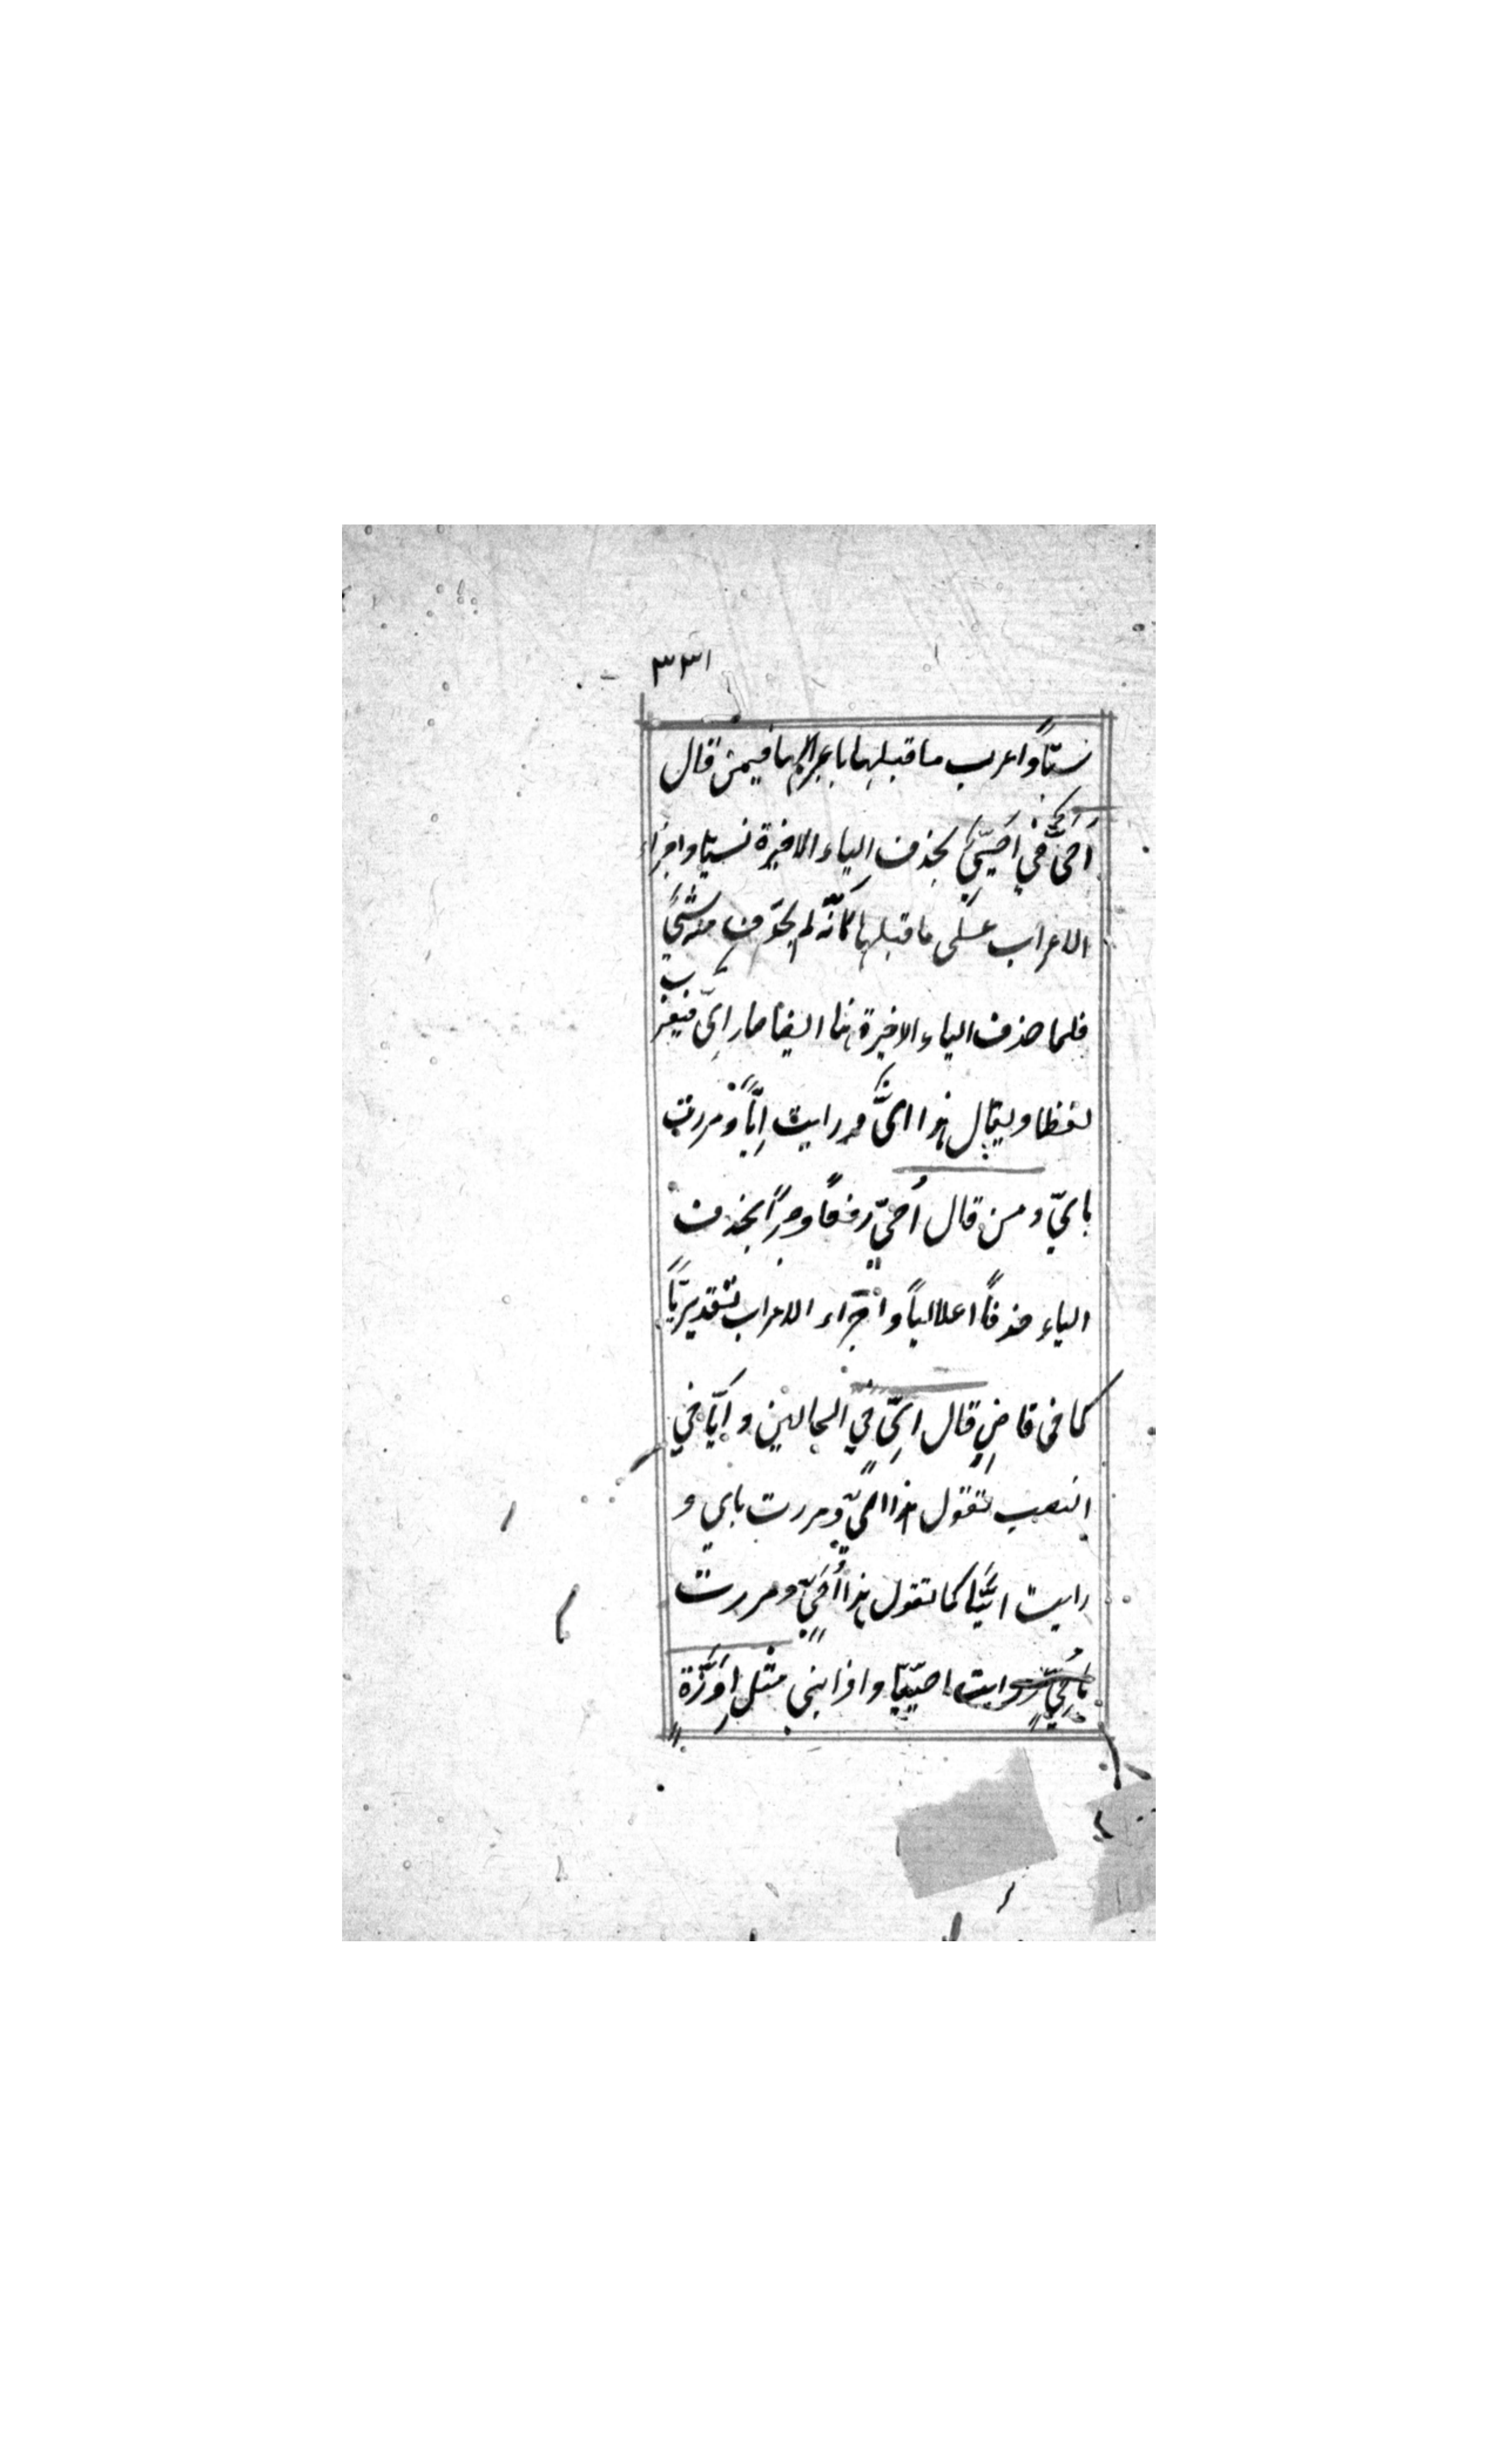 ٣٣١
نسيّاً واعرب ما قبلها باعرابها فيمن قال
اُحَىٌّ في اُحَيِّيٍ بحذف الياء الاخيرة نسيّا واجراء
الاعراب على ما قبلها كانّه لم يحذف منه شئ
فلما حذف الياء الاخيرة هنا ايضا صار اىّ فيعرب
لفظا ويقال هذا اىٌّ ورايت ايّاً ومررت
بايّ ومن قال اُحَيٍّ رفعاً وجراً بحذف
الياء حذفاً اعلالياً واجراء الاعراب تقديريّاً
كما في قاضٍ قال ايٍّ في الحالين و ايّيا في
النصب تقول هذا ايٍّ ومررت باي و
رايت ائيّيا كما تقول هذا اُحَيٍّ ومررت
باُحَيٍّ ورايت احيّيا واذا بني مثل اِوَزَّة